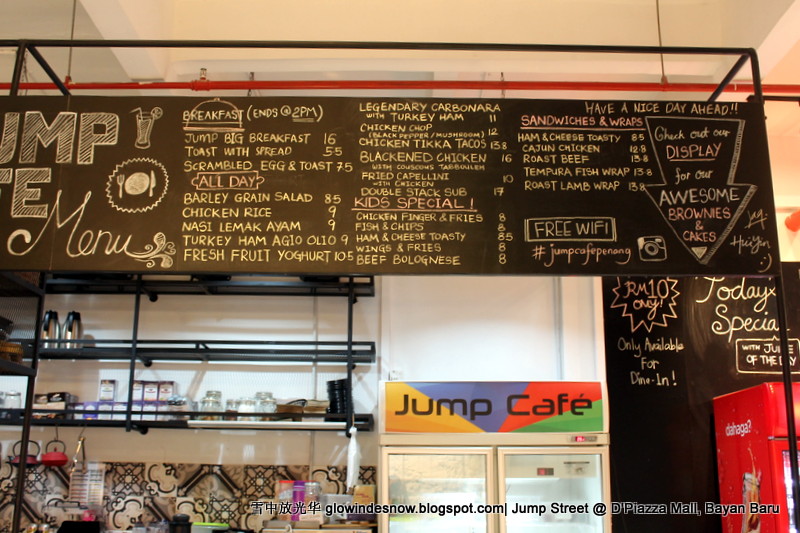 JUMP
CAFE
Menu
BREAKFAST (ENDS @ 2PM)
JUMP BIG BREAKFAST 16
TOAST WITH SPREAD 5.5
SCRAMBLED EGG & TOAST 7.5
ALL DAY
BARLEY GRAIN SALAD 8.5
CHICKEN RICE 9
NASI LEMAK AYAM 9
TURKEY HAM AGIO OLIO 9
FRESH FRUIT YOGHURT 10.5
LEGENDARY CARBONARA
WITH TURKEY HAM 11
CHICKEN CHOP
(BLACK PEPPER/MUSHROOM) 12
CHICKEN TIKKA TACOS 13.8
BLACKENED CHICKEN 16
WITH COUSCOUS TABBOULEH
FRIED CAPELLINI 10
WITH CHICKEN
DOUBLE STACK SUB 17
KIDS SPECIAL!
CHICKEN FINGER & FRIES 8
FISH & CHIPS 8
HAM & CHEESE TOASTY 8.5
WINGS & FRIES 8
BEEF BOLOGNESE 8
HAVE A NICE DAY AHEAD!!
SANDWICHES & WRAPS
HAM & CHEESE TOASTY 8.5
CAJUN CHICKEN 12.8
ROAST BEEF 13.8
TEMPURA FISH WRAP 13.8
ROAST LAMB WRAP 13.8
FREE WIFI
#jumpcafepenang
Check out our
DISPLAY
for our
AWESOME
BROWNIES
& CAKES
RM10
only!
Only Available
For
Dine-In!
Today's
Special
WITH JUICE
OF THE DAY
Jump Café
dahaga?
雪中放光华 glowindesnow.blogspot.com| Jump Street @ D'Piazza Mall, Bayan Baru